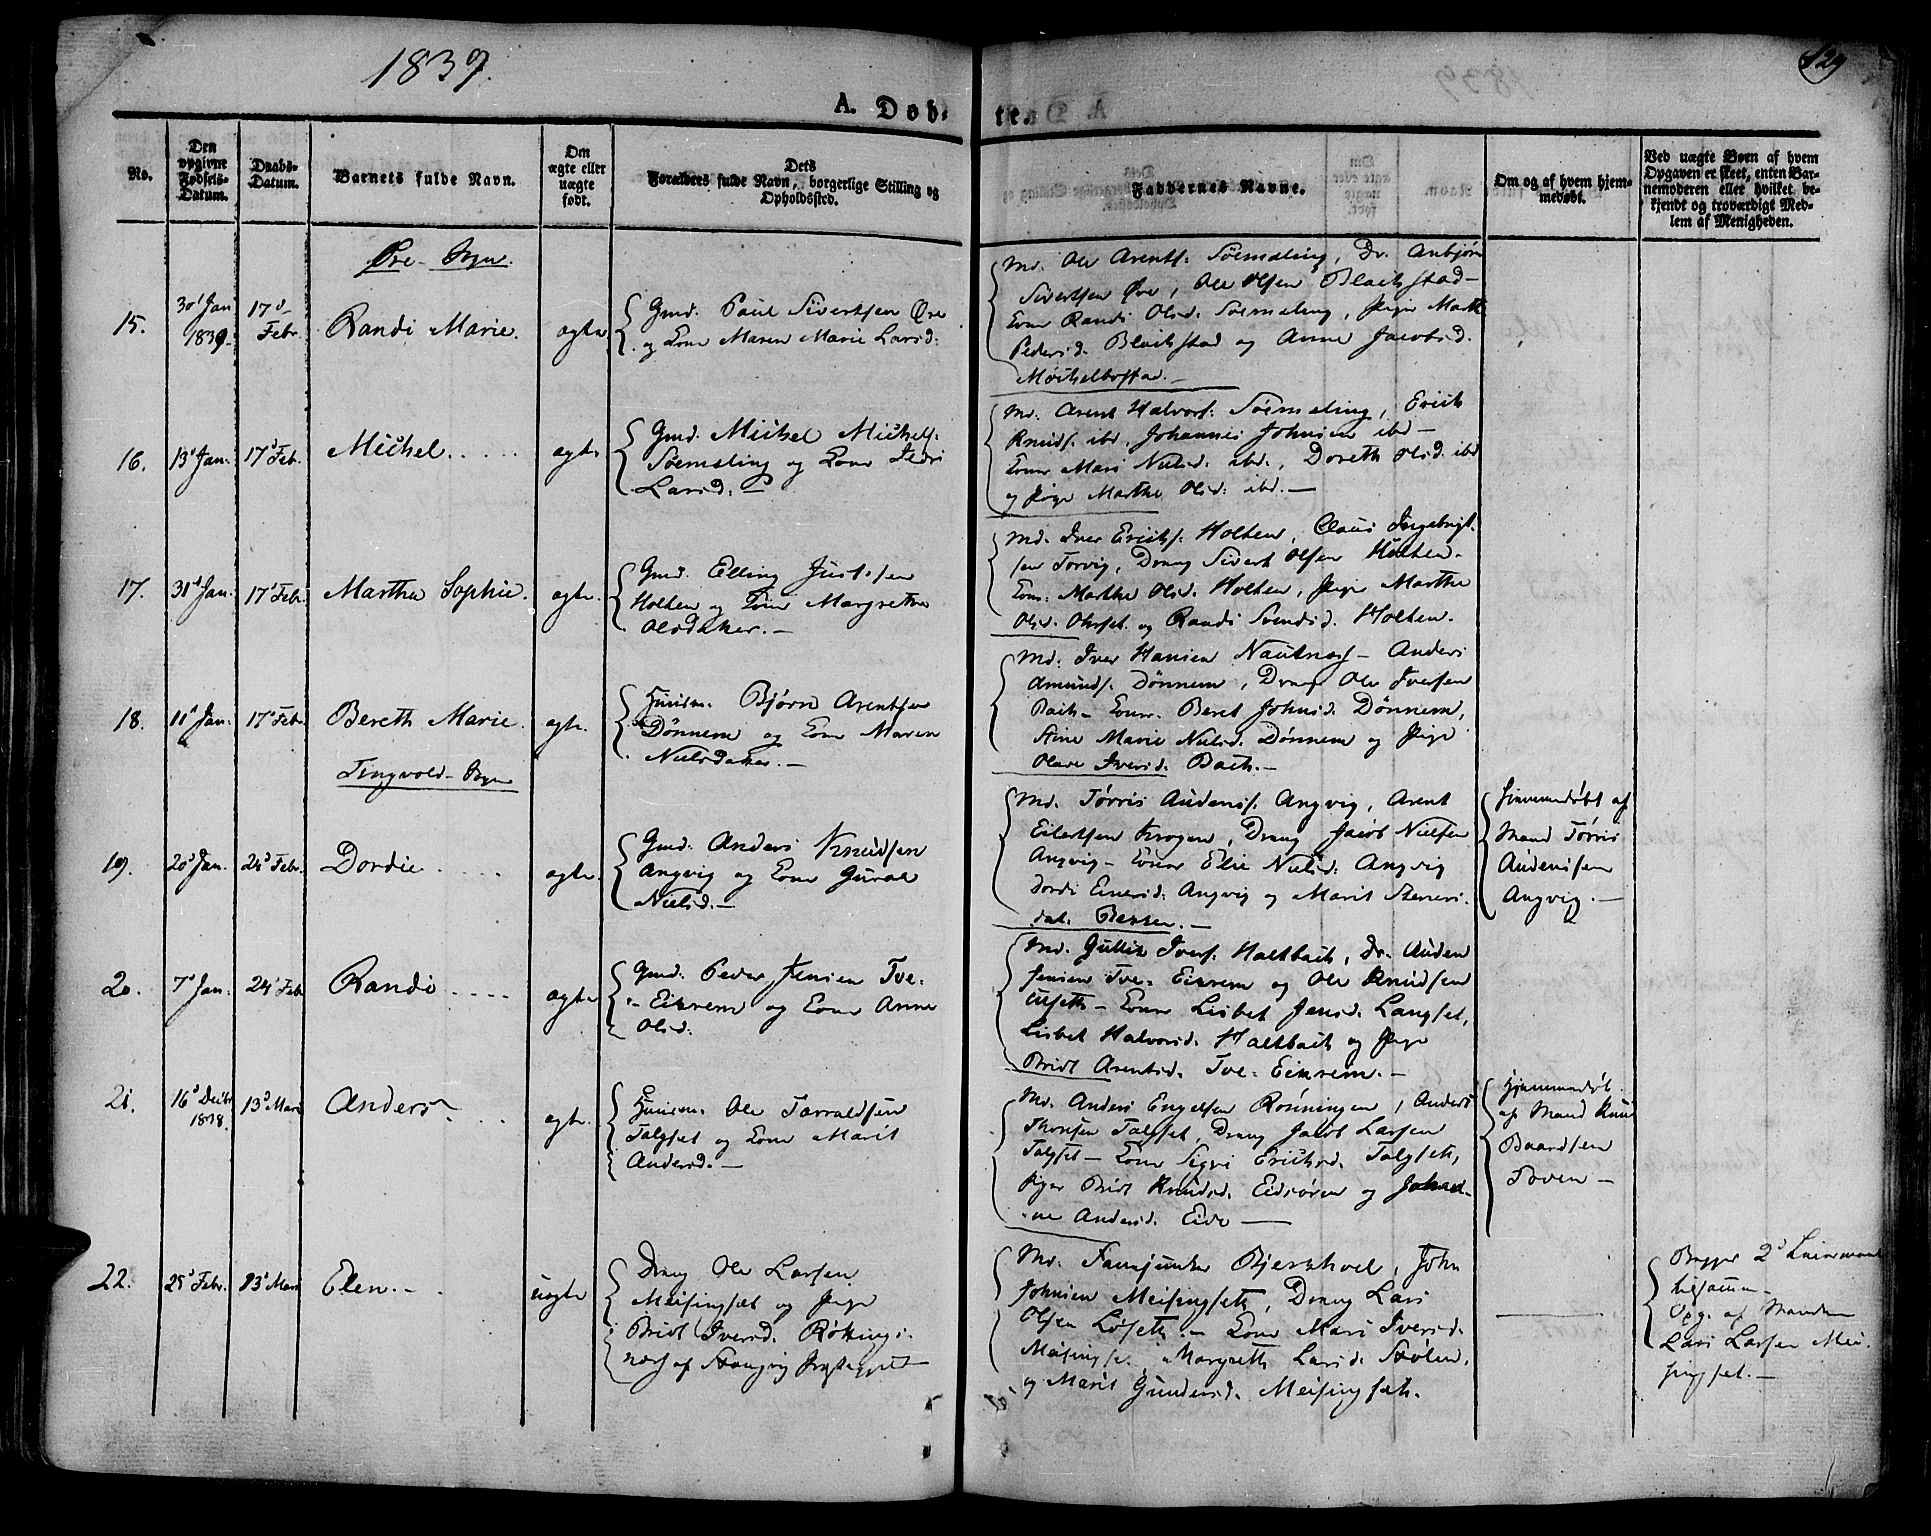 1839.
129
A. Døb- te.
No.
Den opgivne Fødsels-Datum.
Daabs-Datum.
Barnets fulde Navn.
Om ægte eller uægte født.
Dets Forældres fulde Navn, borgerlige Stilling og Opholdssted.
Faddernes Navne.
Om og af hvem hjemmedøbt.
Ved uægte Børn af hvem Opgaven er skeet, enten Barnemoderen eller hvilket bekjendt og troværdigt Medlem af Menigheden.
Øre Sogn.
15.
30' Jan 1839.
17d Febr.
Randi Marie.
ægte
Gmd. Paul Sivertsen Øre
og Kone Maren Marie Larsd:
Md. Ole Arents. Søemeling, Dr. Anbjørn
Sivertsen Øre, Ole Olsen Blackstad
Koner Randi Olsd. Søemeling, Pige Marth
Pedersd. Blackstad og Anne Jacobsd.
Møchelbostad.
16.
13' Jan.
17' Feb.
Michel
ægte
Gmd. Michel Michels.
Søemeling og Kone
Larsd:
Md. Arent Halvors: Søemeling, Erich
Knuds. ibd, Johannes Johnsen ibd
Koner Mari Nielsd. ibd., Doreth Olsd. ibd
og Pige Marthe Olsd: ibd.
17.
31' Jan.
17' Feb.
Martha Sophie.
ægte.
Gmd. Elling Justsen
Holten og Kone Margrethe
Olsdatter.
Md. Iver Erichs. Holten, Claus Ingebrigt-
sen Torvig, Dreng Sivert Olsen Holten.
Kone Marthe Olsd. Holten, Pige Marthe
Olsd. og Randi Svendsd. Holten.
18.
11' Jan.
17' Febr.
Bereth Marie.
ægte.
Huusm. Bjørn Arentsen
Dønnem og Kone Maren
Nielsdatter.
Md. Iver Hansen Nautnæs - Anders
Amunds. Dønnem, Dreng Ole Iversen
Bach - Koner. Beret Johnsd. Dønnem,
Stine Marie Nielsd. Dønnem og Pige
Olave Iversd. Bach.
Tingvold Sogn
19.
20' Jan.
24' Febr.
Dordie
ægte.
Gmd. Anders Knudsen
Angvig og Kone Guroe
Nielsd.
Md. Tørris Audens. Angvig, Arent
Eilertsen Krogen, Dreng Jacob Nielsen
Angvig - Koner Elie Nielsd. Angvig
Dordi Einersd. Angvig og Marit Steners-
dat.
Hjemmedøbt af
Mand Tørris
Audensen
Angvig.
20.
7' Jan.
24' Feb
Randi
ægte
Gmd. Peder Jensen Tve-
Eikrem og Kone Anne
Olsd.
Md. Gullik Ivers. Holtbach, Dr. Auden
Jensen Tve-Eikrem og Ole Knudsen
Koner Lisbet Jensd. Langset,
Lisbet Halvorsd. Holtbach og Pige
Bridt Arentsd. Tve-Eikrem.
21.
16' Decbr 1838.
13' Mars
Anders
ægte.
Huusm. Ole Torraldsen
Talgset og Kone Marit
Andersd.
Md. Anders Engelsen Rønningen, Anders
Thorsen Talgset, Dreng Jacob Larsen
Talgset - Kone Sigri Erichsd. Talgseth,
Piger Bridt Knudsd. Eidsøren og Johan-
ne Andersd. Eide
Hjemmedøbt
af Mand Knu
Baardsen
Torven
22.
25' Febr.
13' Mars
Elen.
uægte
Dreng Ole Larsen
Meisingset og Pige
Bridt Iversd. Røkkings-
næs af Stangvig Præstegjeld
Md. Fannjunker Bjerkhoel, John
Johnsen Meisingseth, Dreng Lars
Olsen Løseth. - Kone Mari Iversd.
Meisingset, Margreth Larsd. Stolen,
og Marit Gundersd. Meisingseth.
Begges 2d Leiermaal
tilsamm-
Opg. af Manden
Lars Larsen Mei-
singset.